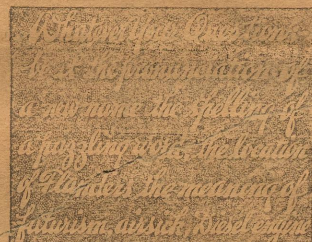 Whatever Your Question
be it the pronunciation of
a noun name the spelling of
a puzzling word the location
of Flanders the meaning of
futurism airsick Diesel engine